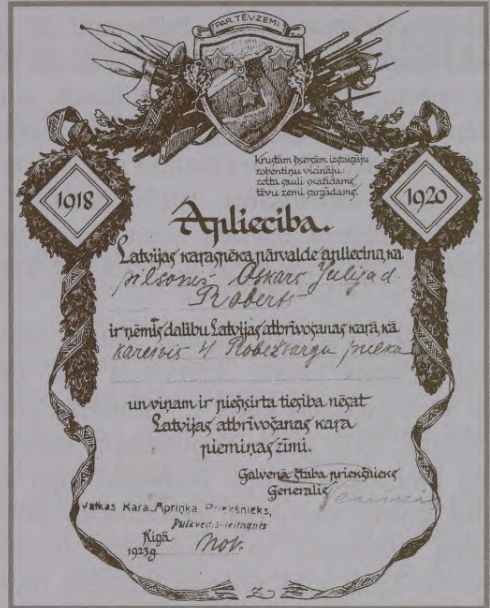 PAR TĒVZEMI
1918
1920
Krustām šķērām izgāju
zobentiņu vicināju:
zelta sauli skatīdams,
tēvu zemi sargādams.
Apliecība.
Latvijas karaspēka pārvalde apliecina, ka
pilsonis Oskars Julija d
Roberts
ir ņēmis dalību Latvijas atbrīvošanas karā, kā
kareivis 4 Robežsargu pulkā
un viņam ir piešķirta tiesība nēsāt
Latvijas atbrīvošanas kara
piemiņas zīmi.
Galvenā štaba priekšnieks
Ģenerālis
Valkas Kara Apriņķa Priekšnieks,
Pulkvedis-leitnants
Rīgā
1923.g. Nov.